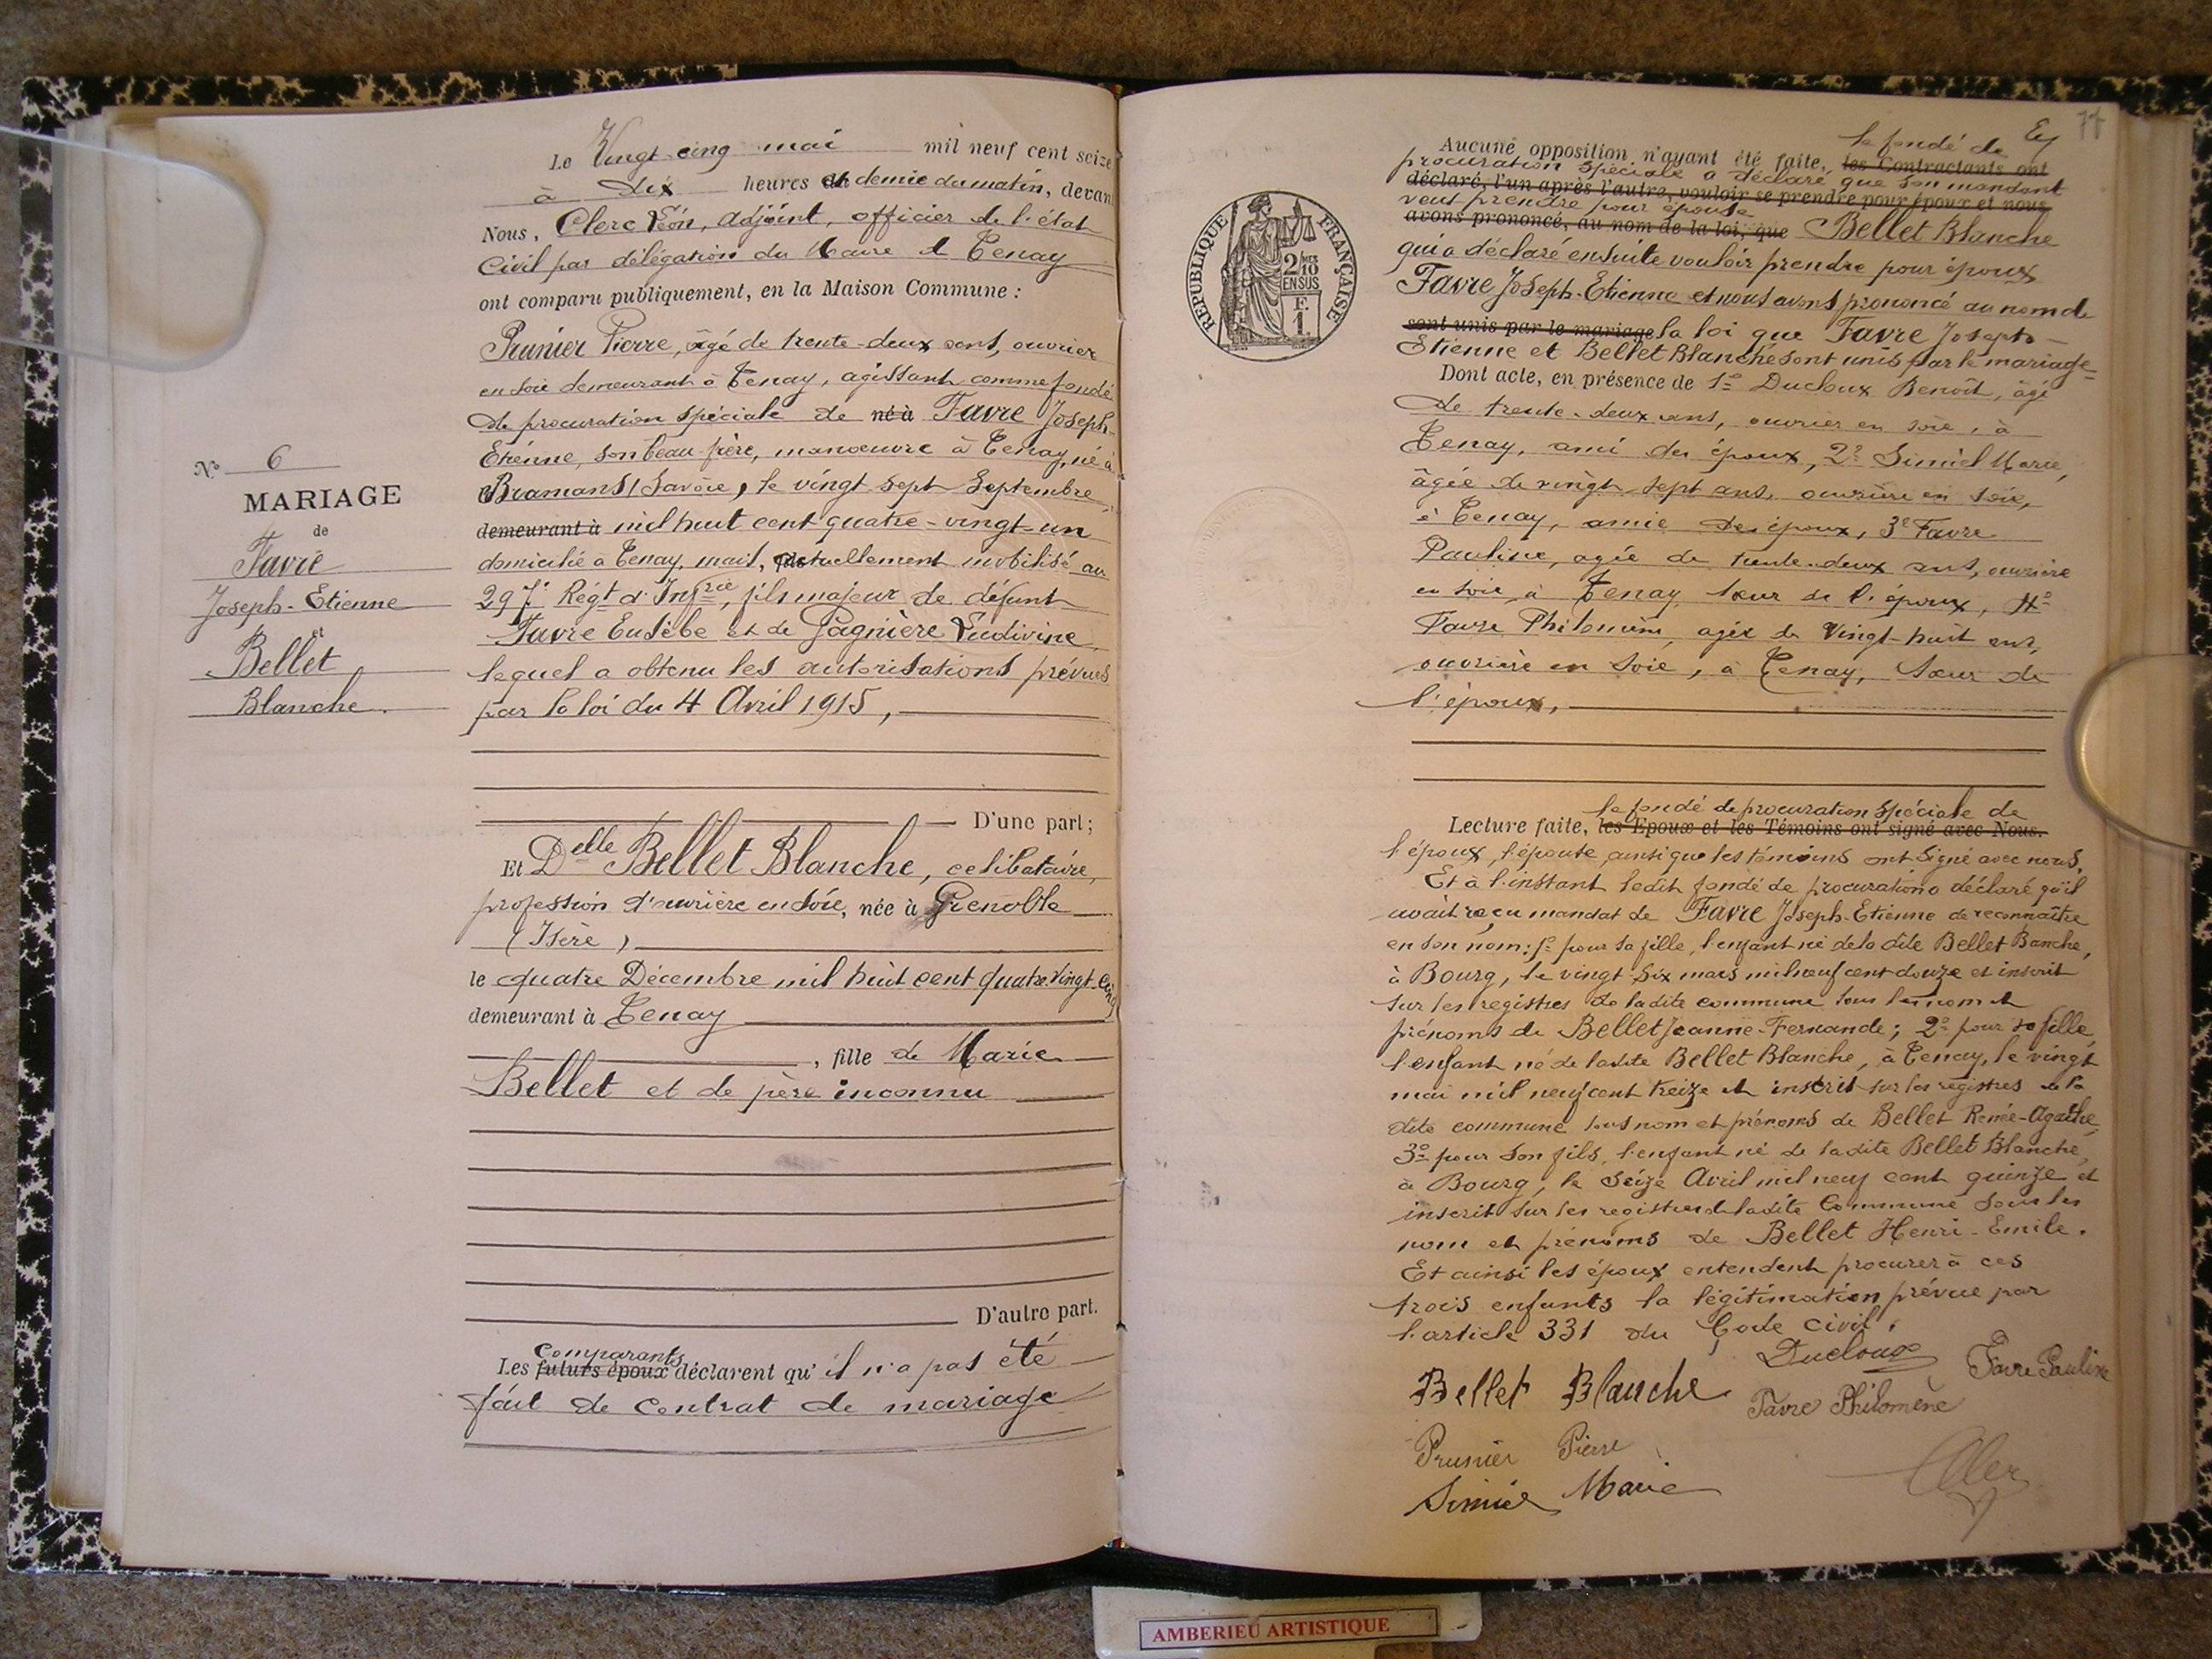 Le Vingt cinq mai mil neuf cent seize
à dix heures et demie du matin, devant
Nous, Clerc Léon, adjoint, officier de l'état
civil par délégation du Maire de Tenay
ont comparu publiquement, en la Maison Commune :
Prunier Pierre, âgé de trente-deux ans, ouvrier
en soie demeurant à Tenay, agissant comme fondé
de procuration spéciale de né à Favre Joseph-
Etienne, son beau-frère, manoeuvre à Tenay, né à
Bramans (Savoie), le vingt sept Septembre
demeurant à mil huit cent quatre-vingt-un
domicilié à Tenay, mais, actuellement mobilisé au
297e Régt d'Infrie, fils majeur de défunt
Favre Eusèbe et de Gagnière Ludivine
lequel a obtenu les autorisations prévues
par la loi du 4 Avril 1915,
N° 6
MARIAGE
de
Favre
Joseph-Etienne
et
Bellet
Blanche.
D'une part;
Et Delle Bellet Blanche, celibataire,
profession d'ouvrière en soie, née à Grenoble
(Isère)
le quatre Décembre mil huit cent quatre-vingt-cinq
demeurant à Tenay
, fille de Marie
Bellet et de père inconnu
D'autre part.
comparants
Les futurs époux déclarent qu'il n'a pas été
fait de contrat de mariage
77
le fondé de
Aucune opposition n'ayant été faite, les Contractants ont
procuration spéciale a déclaré que son mandant
déclaré, l'un après l'autre, vouloir se prendre pour époux et nous
veut prendre pour épouse
avons prononcé, au nom de la loi, que Bellet Blanche
qui a déclaré ensuite vouloir prendre pour époux
Favre Joseph-Etienne et nous avons prononcé au nom de
sont unis par le mariage la loi que Favre Joseph-
Etienne et Bellet Blanche sont unis par le mariage
Dont acte, en présence de 1° Ducloux Benoît, âgé
de trente-deux ans, ouvrier en soie, à
Tenay, ami des époux, 2° Simiel Marie,
âgée de vingt-sept ans, ouvrière en soie,
à Tenay, amie des époux, 3° Favre
Pauline, agée de trente-deux ans, ouvrière
en soie, à Tenay, soeur de l'époux, 4°
Favre Philomène, agée de Vingt-huit ans,
ouvrière en soie, à Tenay, soeur de
l'époux,
le fondé de procuration spéciale de
Lecture faite, les Epoux et les Témoins ont signé avec Nous.
l'époux, l'épouse, ainsi que les témoins ont signé avec nous.
Et à l'instant ledit fondé de procuration a déclaré qu'il
avait reçu mandat de Favre Joseph-Etienne de reconnaître
en son nom: 1° pour sa fille, l'enfant né de la dite Bellet Blanche,
à Bourg, le vingt-six mars mil neuf cent douze et inscrit
sur les registres de ladite commune sous les nom et
prénoms de Bellet Jeanne-Fernande; 2° pour sa fille
l'enfant né de ladite Bellet Blanche, à Tenay, le vingt
mai mil neuf cent treize et inscrit sur les registres de la
dite commune sous nom et prénoms de Bellet Renée-Agathe,
3° pour son fils, l'enfant né de ladite Bellet Blanche,
à Bourg, le seize Avril mil neuf cent quinze et
inscrit sur les registres de ladite Commune sous les
nom et prénoms de Bellet Henri-Emile.
Et ainsi les époux entendent procurer à ces
trois enfants la légitimation prévue par
l'article 331 du Code civil.
Ducloux
Favre Pauline
Bellet Blanche
Favre Philomène
Prunier Pierre
Simiel Marie
RÉPUBLIQUE FRANÇAISE
2/10
EN SUS
F.
1.
AMBERIEU ARTISTIQUE